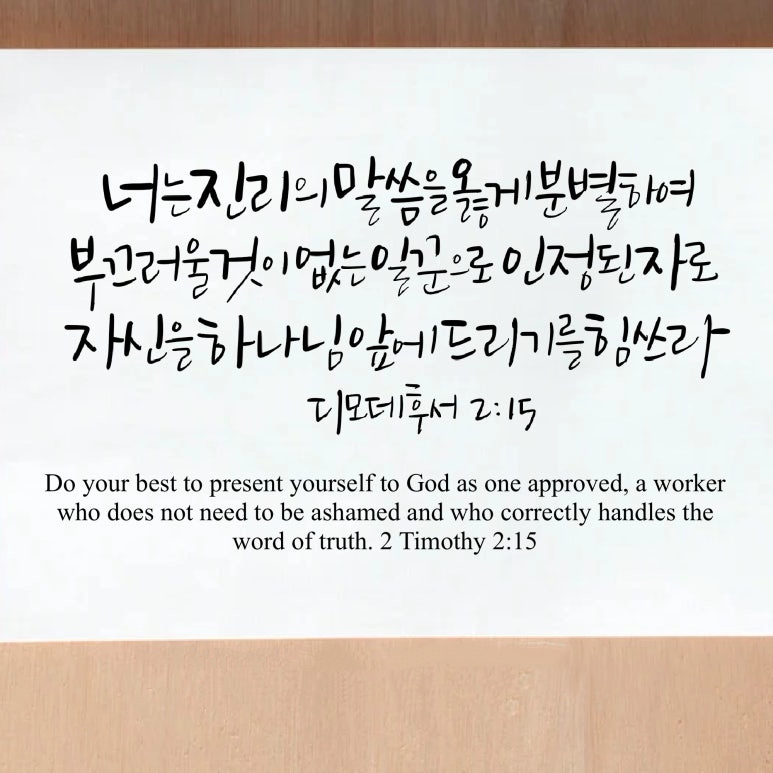 너는 진리의 말씀을 옳게 분별하여
부끄러울 것이 없는 일꾼으로 인정된 자로
자신을 하나님 앞에 드리기를 힘쓰라
디모데후서 2:15
Do your best to present yourself to God as one approved, a worker
who does not need to be ashamed and who correctly handles the
word of truth. 2 Timothy 2:15